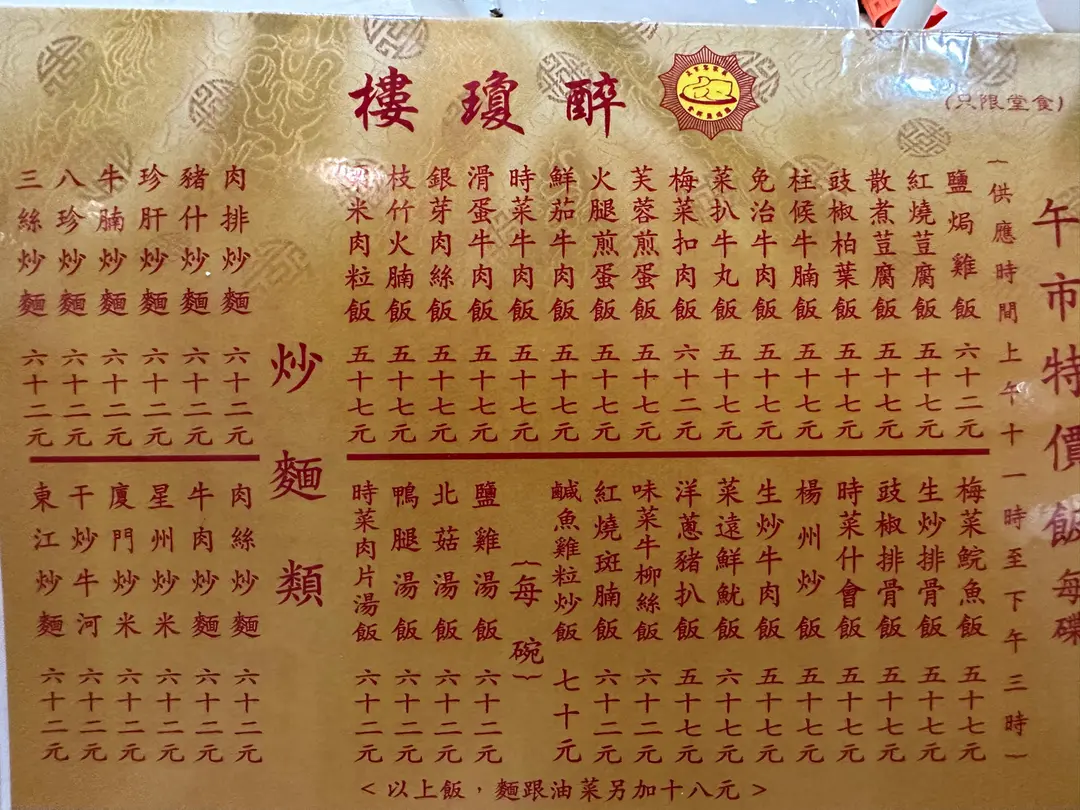 醉瓊樓
(只限堂食)
午市特價飯每碟
(供應時間上午十一時至下午三時)
鹽焗雞飯 六十二元
紅燒荳腐飯 五十七元
散煮荳腐飯 五十七元
豉椒柏葉飯 五十七元
柱候牛腩飯 五十七元
免治牛肉飯 五十七元
菜扒牛丸飯 五十七元
梅菜扣肉飯 六十二元
芙蓉煎蛋飯 五十七元
火腿煎蛋飯 五十七元
鮮茄牛肉飯 五十七元
時菜牛肉飯 五十七元
滑蛋牛肉飯 五十七元
銀芽肉絲飯 五十七元
枝竹火腩飯 五十七元
粟米肉粒飯 五十七元
梅菜鯇魚飯 五十七元
生炒排骨飯 五十七元
豉椒排骨飯 五十七元
時菜什會飯 五十七元
楊州炒飯 五十七元
生炒牛肉飯 五十七元
菜遠鮮魷飯 六十七元
洋蔥豬扒飯 五十七元
味菜牛柳絲飯 六十二元
紅燒斑腩飯 六十二元
鹹魚雞粒炒飯 七十元
(每碗)
鹽雞湯飯 六十二元
北菇湯飯 六十二元
鴨腿湯飯 六十二元
時菜肉片湯飯 六十二元
炒麵類
肉排炒麵 六十二元
豬什炒麵 六十二元
珍肝炒麵 六十二元
牛腩炒麵 六十二元
八珍炒麵 六十二元
三絲炒麵 六十二元
肉絲炒麵 六十二元
牛肉炒麵 六十二元
星州炒米 六十二元
廈門炒米 六十二元
干炒牛河 六十二元
東江炒麵 六十二元
<以上飯，麵跟油菜另加十八元>